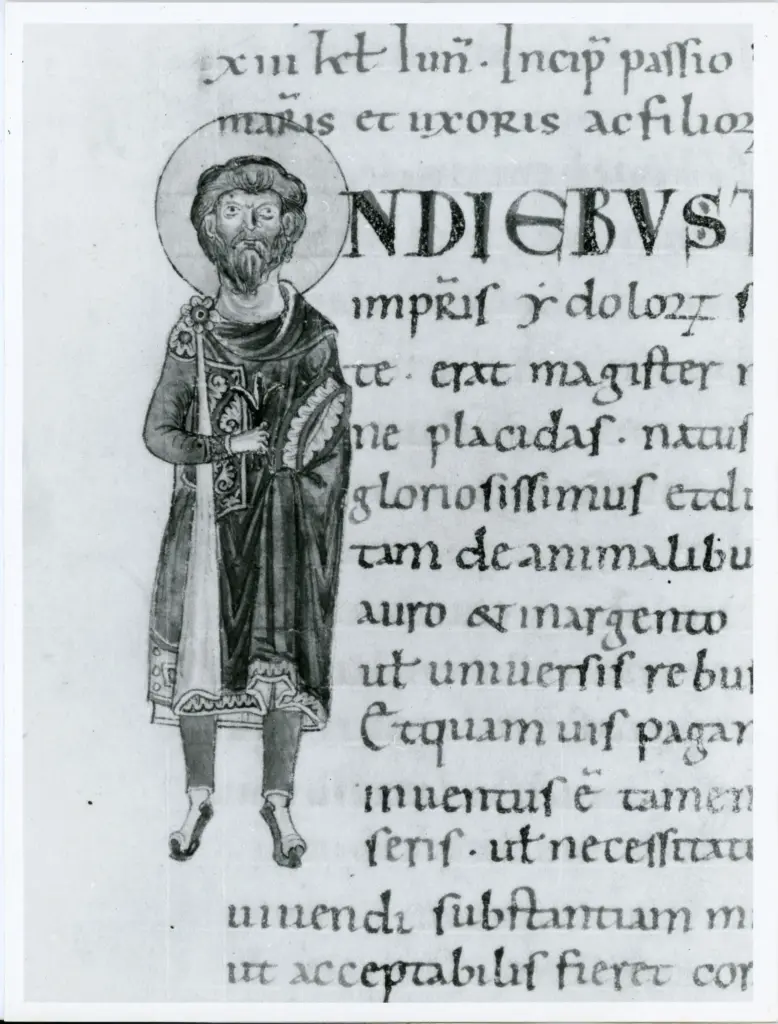 xiii kł Iun̄. Incip̄ passio
mar̄is et uxoris ac filior
NDIEBVS T
impr̄is dolor s
te. erat magister
ne placidas. natus
gloriosissimus et di
tam de animalibu
auro & in argento
uł universis rebus
Et quam vis pagan
inventus ē tamen
seris. uł necessitate
uiuendi substantiam m
ut acceptabilis fieret cor